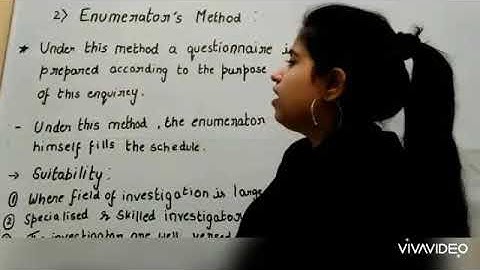 2) Enumerator's Method :
* Under this method a questionnaire is
prepared according to the purpose
of this enquirey.
- Under this method, the enumerator
himself fills the schedule.
→ Suitability:
① Where field of investigation is large
② Specialised & Skilled investigator
investigator are well versed
VIVAVIDEO